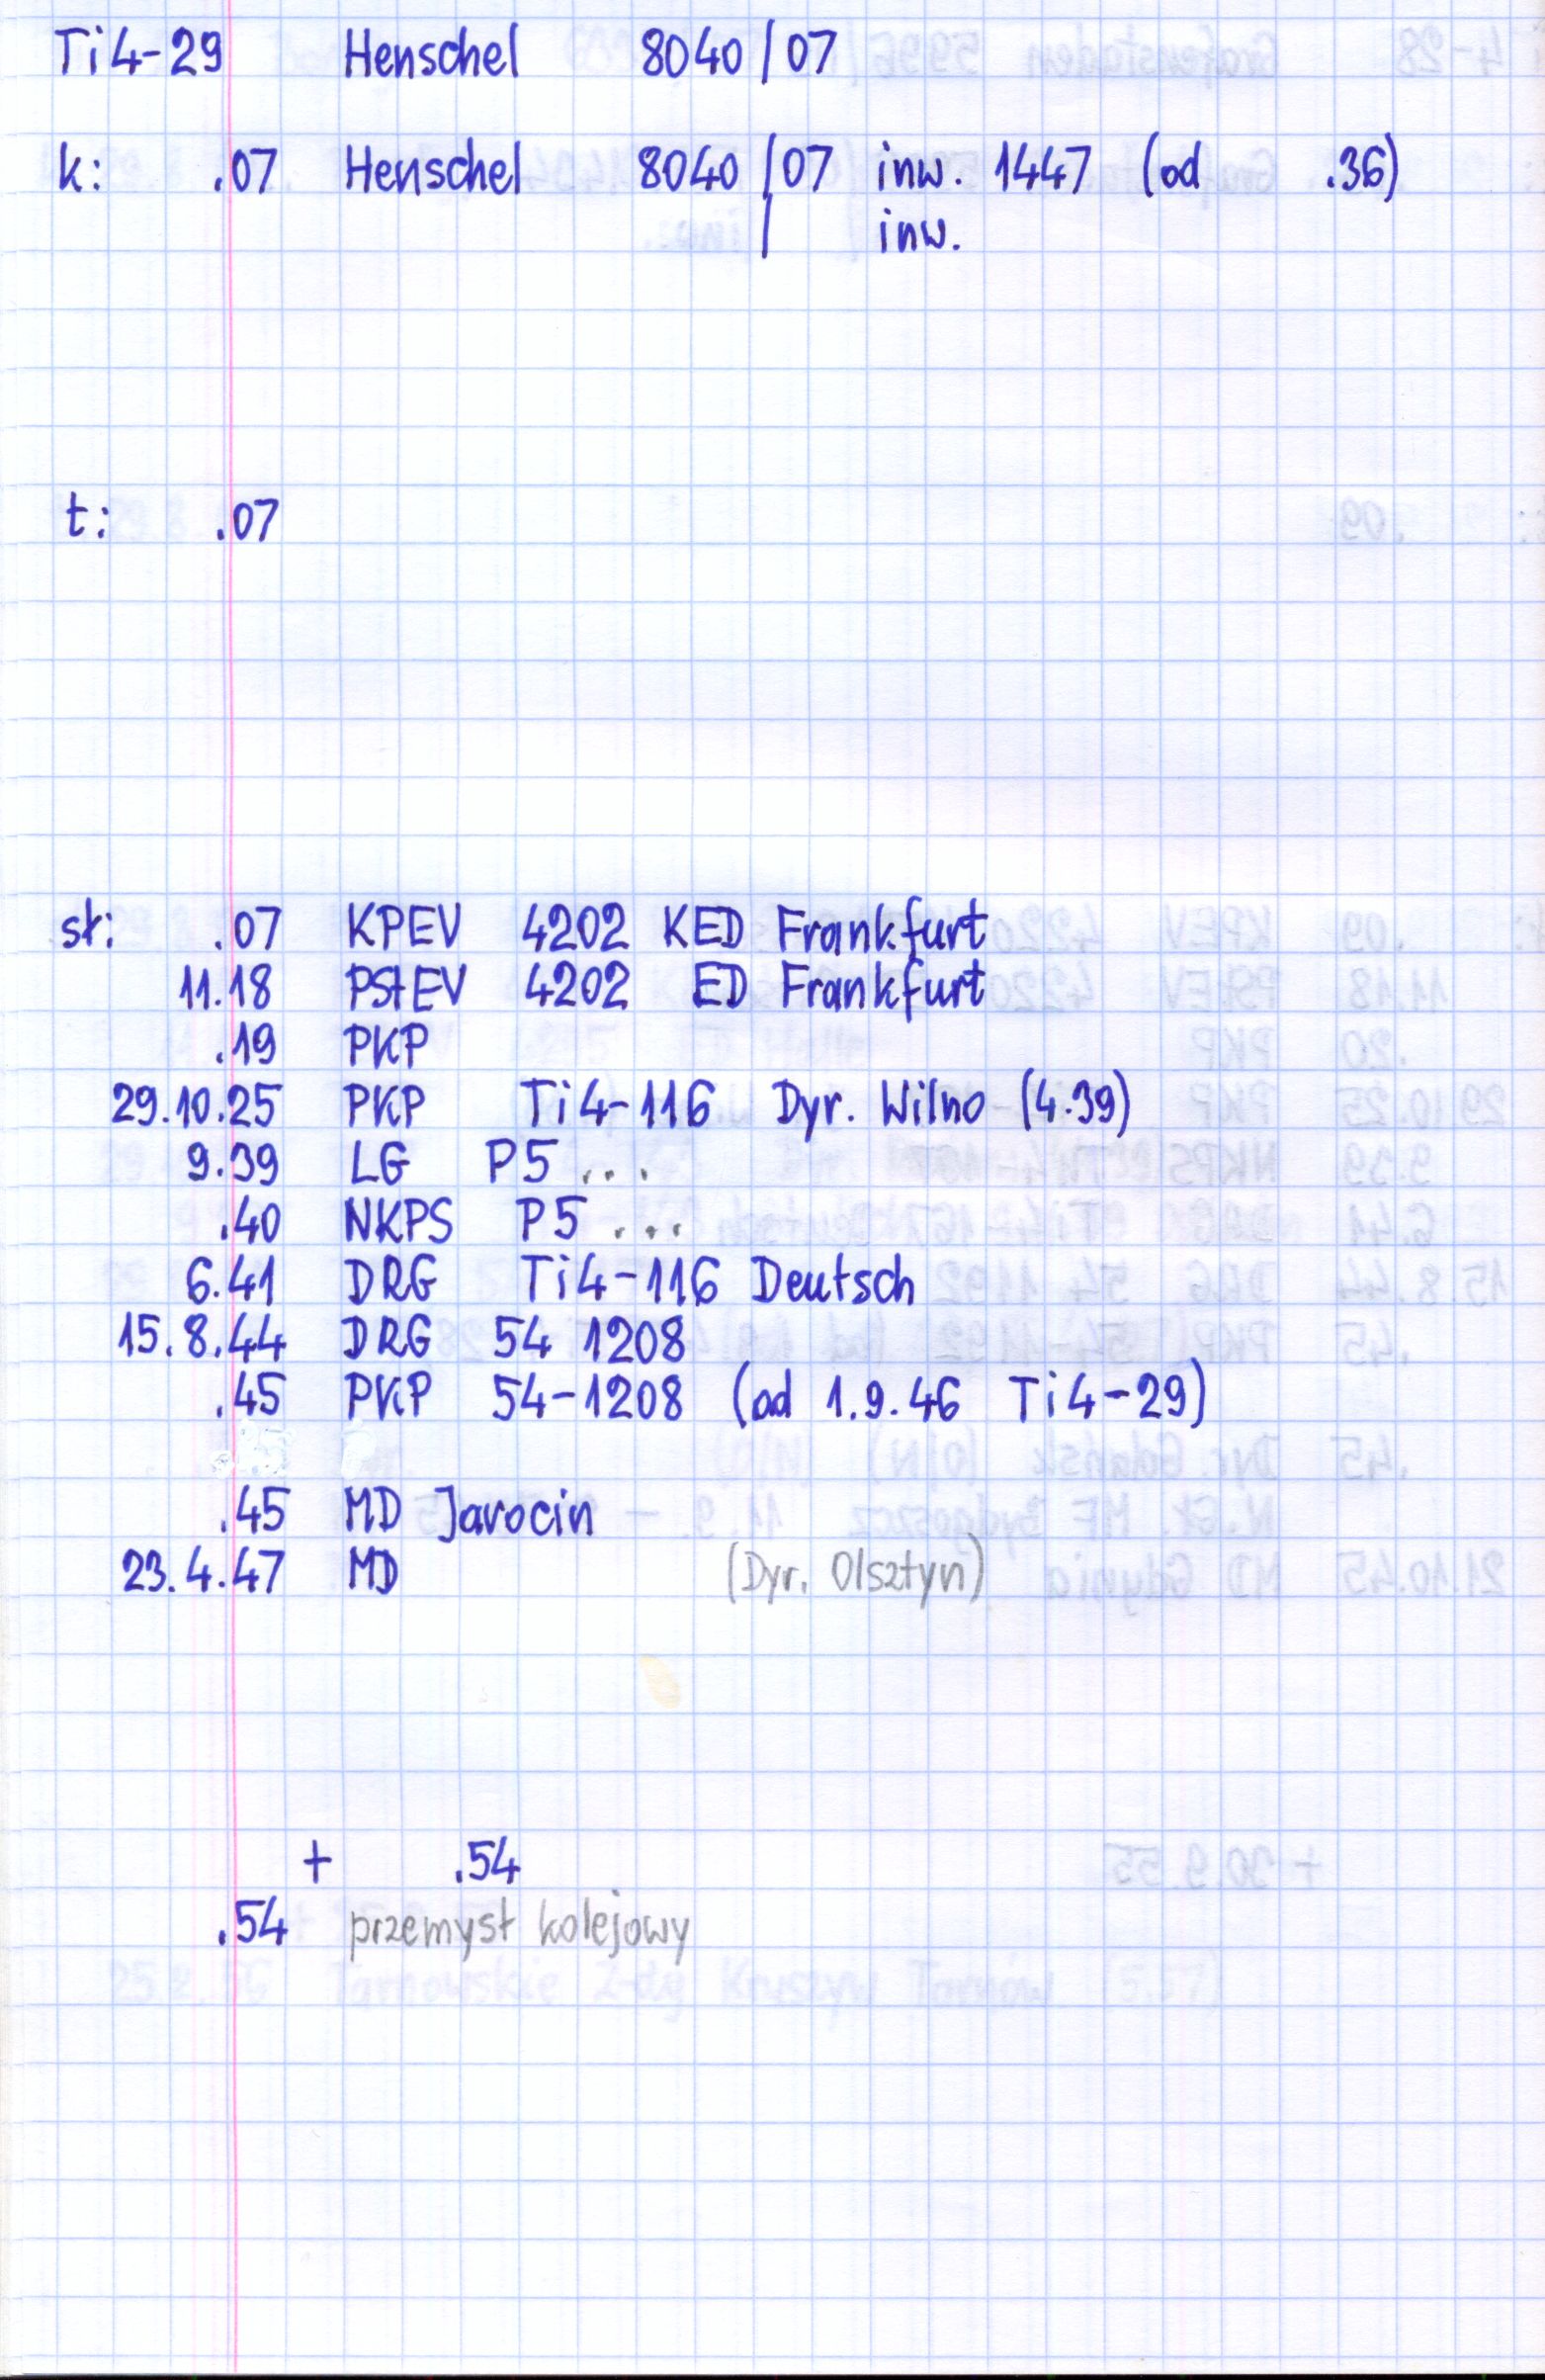 Ti4-29 Henschel 8040/07
k: .07 Henschel 8040/07 inw. 1447 (od .36)
/ inw.
t: .07
sł: .07 KPEV 4202 KED Frankfurt
11.18 PStEV 4202 ED Frankfurt
.19 PKP
29.10.25 PKP Ti4-116 Dyr. Wilno (4.39)
9.39 LG P5 ...
.40 NKPS P5 ...
6.41 DRG Ti4-116 Deutsch
15.8.44 DRG 54 1208
.45 PKP 54-1208 (od 1.9.46 Ti4-29)
.45 MD Jarocin
23.4.47 MD (Dyr. Olsztyn)
+ .54
.54 przemysł kolejowy